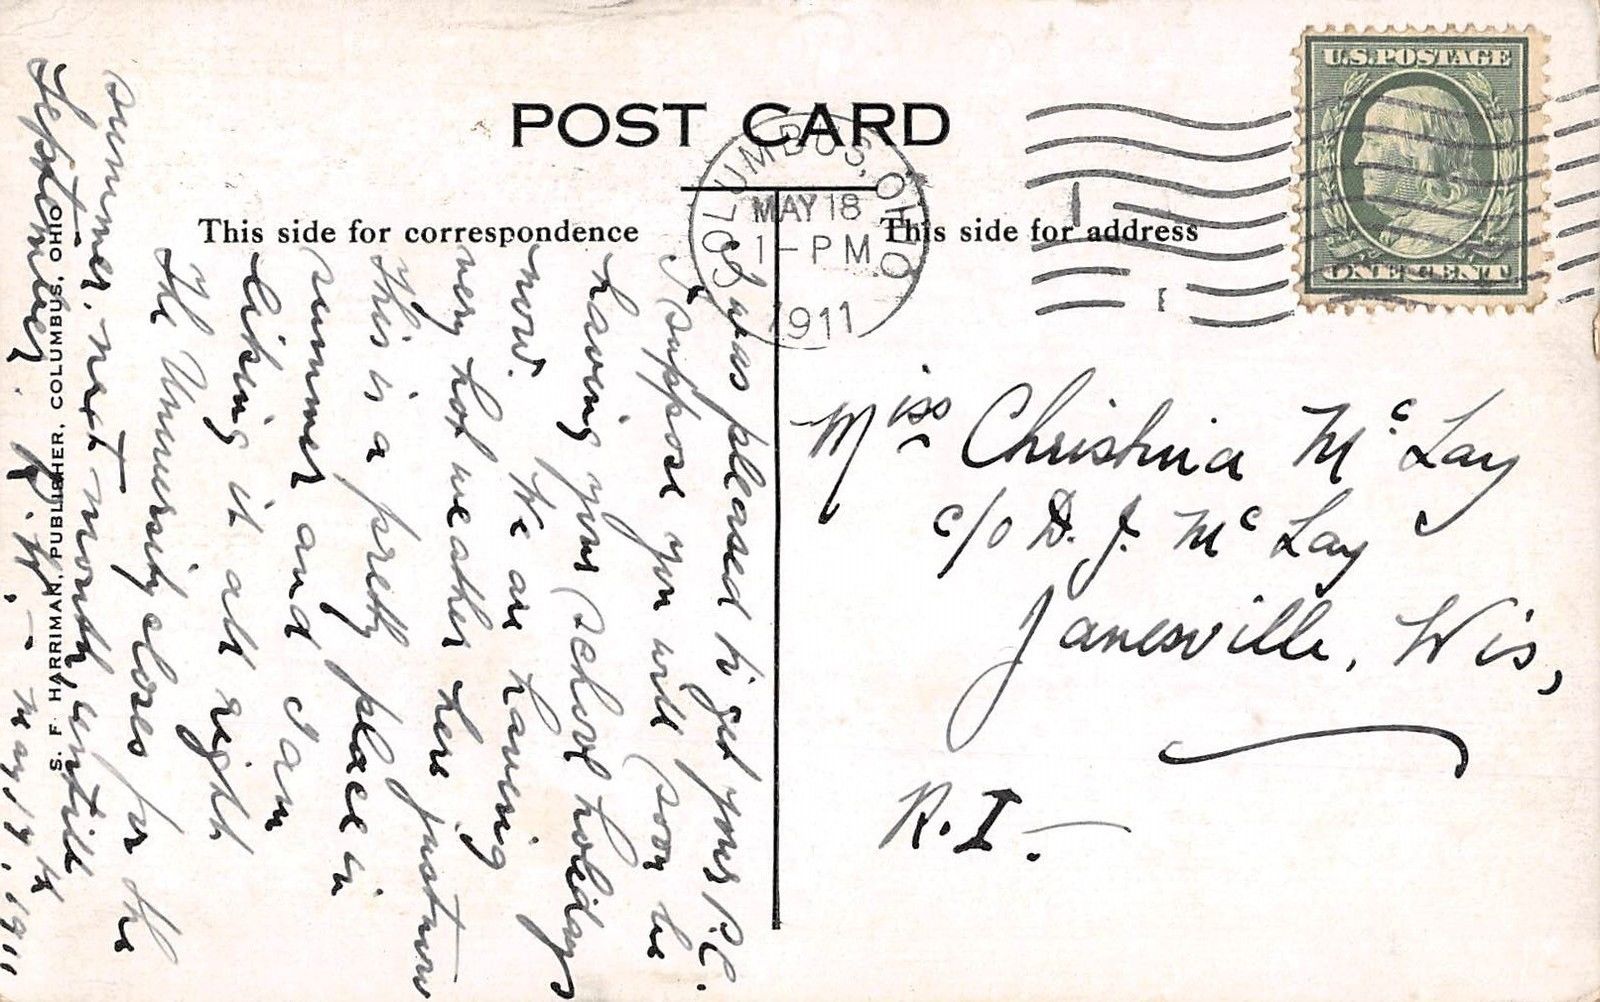 POST CARD
This side for correspondence
This side for address
COLUMBUS, OHIO
MAY 18
1-PM
1911
U.S. POSTAGE
ONE CENT
Miss Christina McLay
c/o D. J. McLay
Janesville, Wis,
R. I.
I was pleased to get your P.C.
I suppose you will soon be
having your school holidays
now. We are having
very hot weather here just now
This is a pretty place in
summer and I am
liking it all right
The University closes for the
summer, next month, until
September.
May 17, 1911
S. F. HARRIMAN, PUBLISHER, COLUMBUS, OHIO